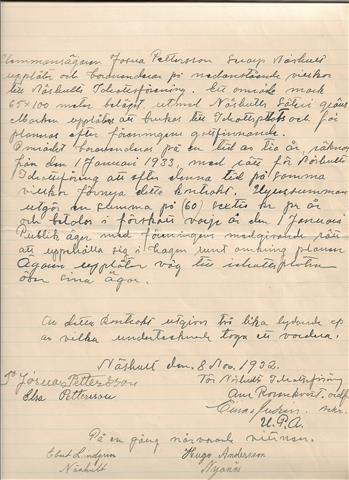 Hemmansägaren Josua Pettersson Näshult
upplåter och bortarrenderar på nedanstående villkor
till Näshults Idrottsförening. Ett område mark
65x100 meter beläget utmed Näshults Säteri gräns
Marken upplåtes att brukas till Idrottsplats och får
planeras efter föreningens gottfinnande.
Området bortarrenderas på en tid av tio år räknat
från den 1 Januari 1933, med rätt för Näshults
Idrottsförening att efter denna tid på samma
villkor förnya detta kontrakt. Hyressumman
utgör en summa på (60) sextio kr pr år
och betalas i förskott varje år den 1 Januari
Publik äger med föreningens medgivande rätt
att uppehålla sig i hagen runt omkring planen
Ägaren upplåter väg till idrottsplatsen
över sina ägor.
Av detta kontrakt utgives två lika lydande ex
av vilka undertecknade taga ett vardera.
Näshult den 8 Nov. 1932.
Josua Pettersson För Näshults Idrottsförening
Elsa Pettersson Rosenkvist, ordf
sekr.
U.P.A.
På en gång närvarande vittnen.
Ebert Lindgren Hugo Andersson
Näshult Nyanäs